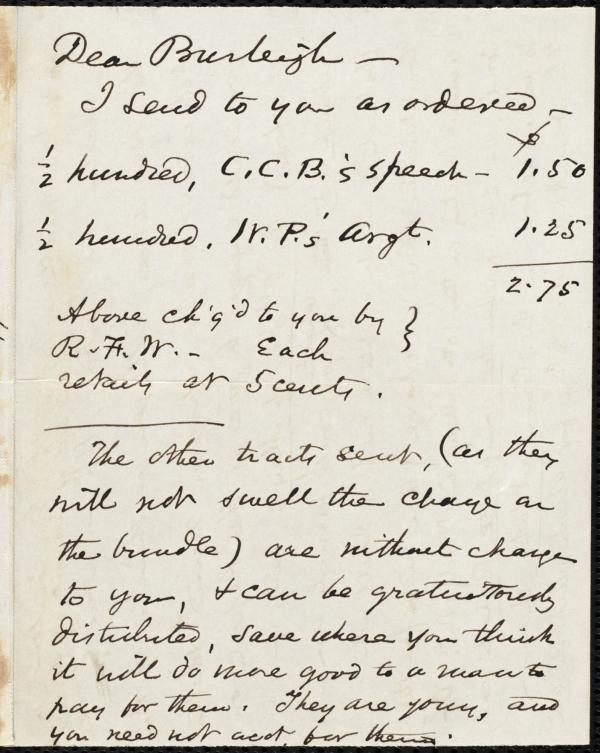 Dear Burleigh —
I send to you as ordered, —
$
½ hundred, C.C.B.'s speech — 1.50
½ hundred. W.P.'s Argt. 1.25
2.75
Above ch'g'd to you by }
R.F.W. — Each
retails at 5 cents.
The other tracts sent, (as they
will not swell the charge on
the bundle) are without charge
to you, & can be gratuitously
distributed, save where you think
it will do more good to a man to
pay for them. They are yours, and
you need not acct. for them.